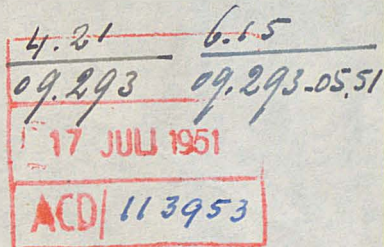 4.21 6.15
09.293 09.293-05.51
17 JULI 1951
ACD 113953